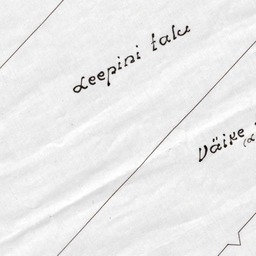 Leepini talu
Väike